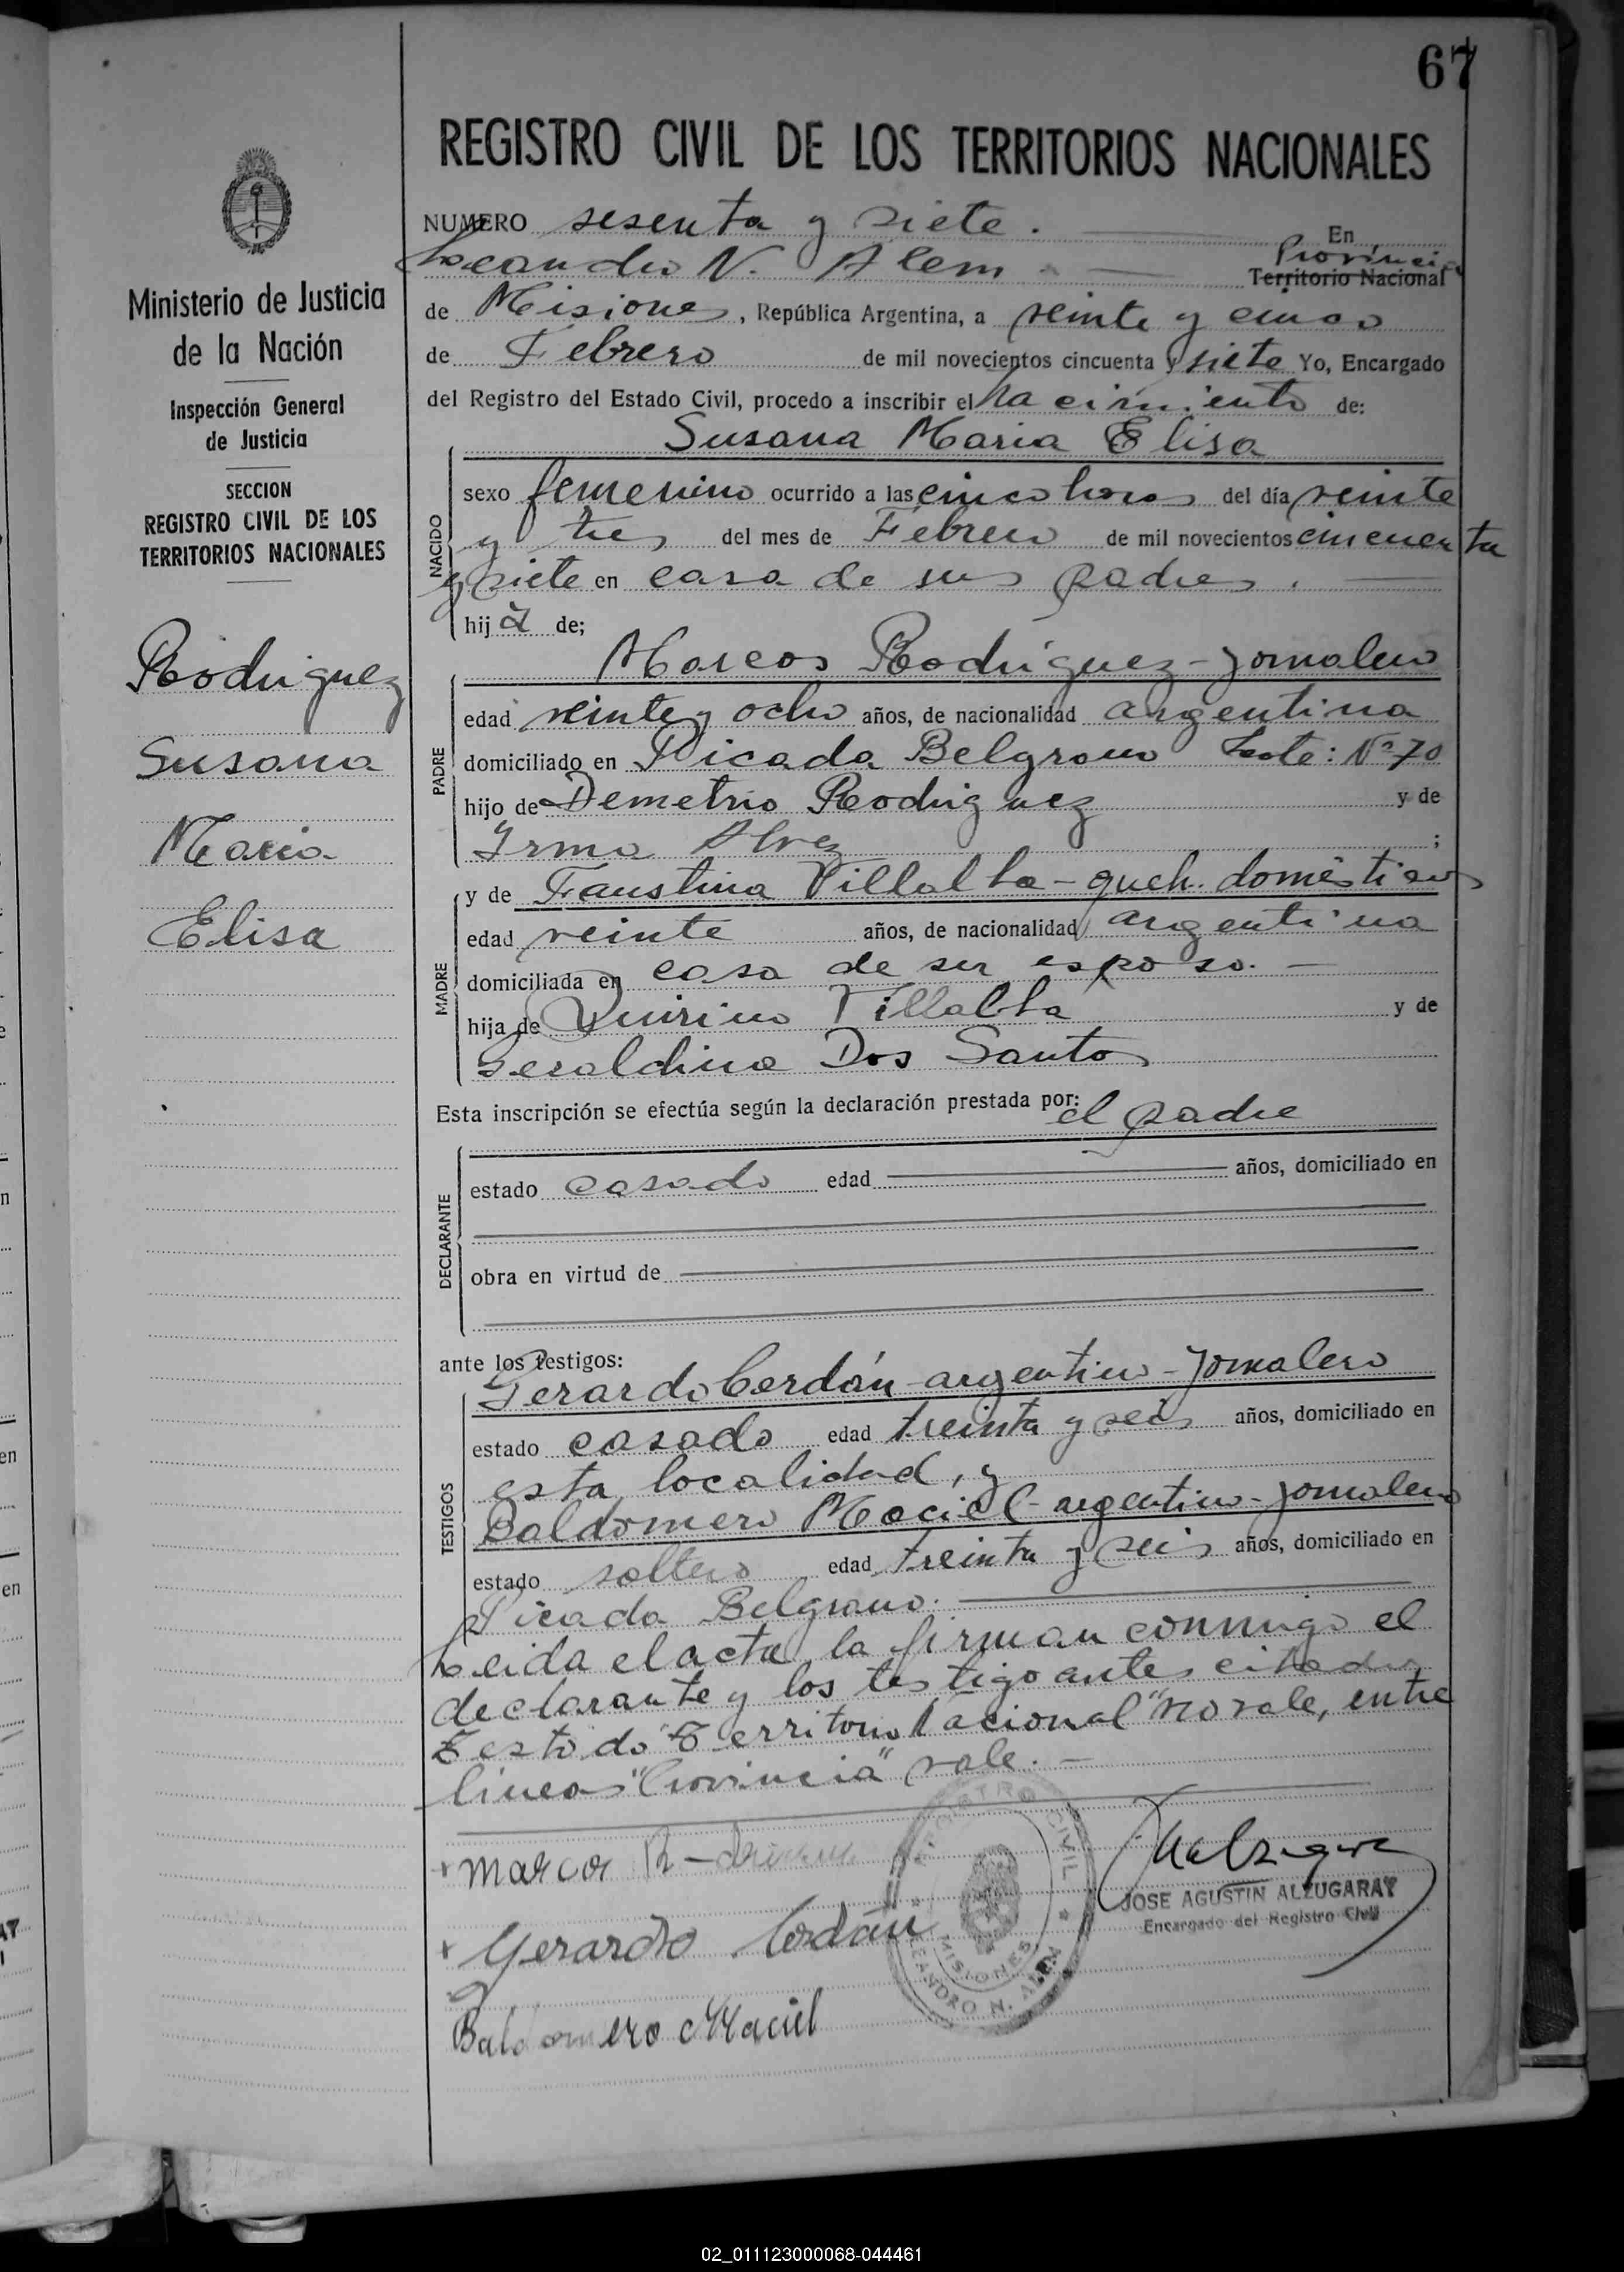 67
Ministerio de Justicia
de la Nación
Inspección General
de Justicia
SECCION
REGISTRO CIVIL DE LOS
TERRITORIOS NACIONALES
Rodriguez
Susana
Maria
Elisa
REGISTRO CIVIL DE LOS TERRITORIOS NACIONALES
NUMERO sesenta y siete. En
Leandro N. Alem Provincia Territorio Nacional
de Misiones, República Argentina, a veinte y cinco
de Febrero de mil novecientos cincuenta y siete Yo, Encargado
del Registro del Estado Civil, procedo a inscribir el nacimiento de:
Susana Maria Elisa
NACIDO
sexo femenino ocurrido a las cinco horas del día veinte
y tres del mes de Febrero de mil novecientos cincuenta
y siete en casa de sus padres.
hija de;
Marcos Rodriguez - jornalero
PADRE
edad veinte y ocho años, de nacionalidad argentina
domiciliado en Picada Belgrano Lote: Nº 70
hijo de Demetrio Rodriguez y de
Irma Alvez ;
MADRE
y de Faustina Villalba - queh. domésticos
edad veinte años, de nacionalidad argentina
domiciliada en casa de su esposo. -
hija de Quirino Villalba y de
Geraldina Dos Santos
Esta inscripción se efectúa según la declaración prestada por: el padre
DECLARANTE
estado casado edad años, domiciliado en
obra en virtud de
ante los testigos:
Gerardo Cerdán - argentino - jornalero
TESTIGOS
estado casado edad treinta y seis años, domiciliado en
esta localidad, y
Baldomero Maciel - argentino - jornalero
estado soltero edad treinta y seis años, domiciliado en
Picada Belgrano.
Leida el acta, la firman conmigo el
declarante y los testigo antes citados
Testado "Territorio Nacional" no vale, entre
lineas "Provincia" vale. -
Marcos
Gerardo Cerdán
Baldomero Maciel
REGISTRO CIVIL
MISIONES
LEANDRO N. ALEM
JOSE AGUSTIN ALZUGARAY
Encargado del Registro Civil
02_011123000068-044461